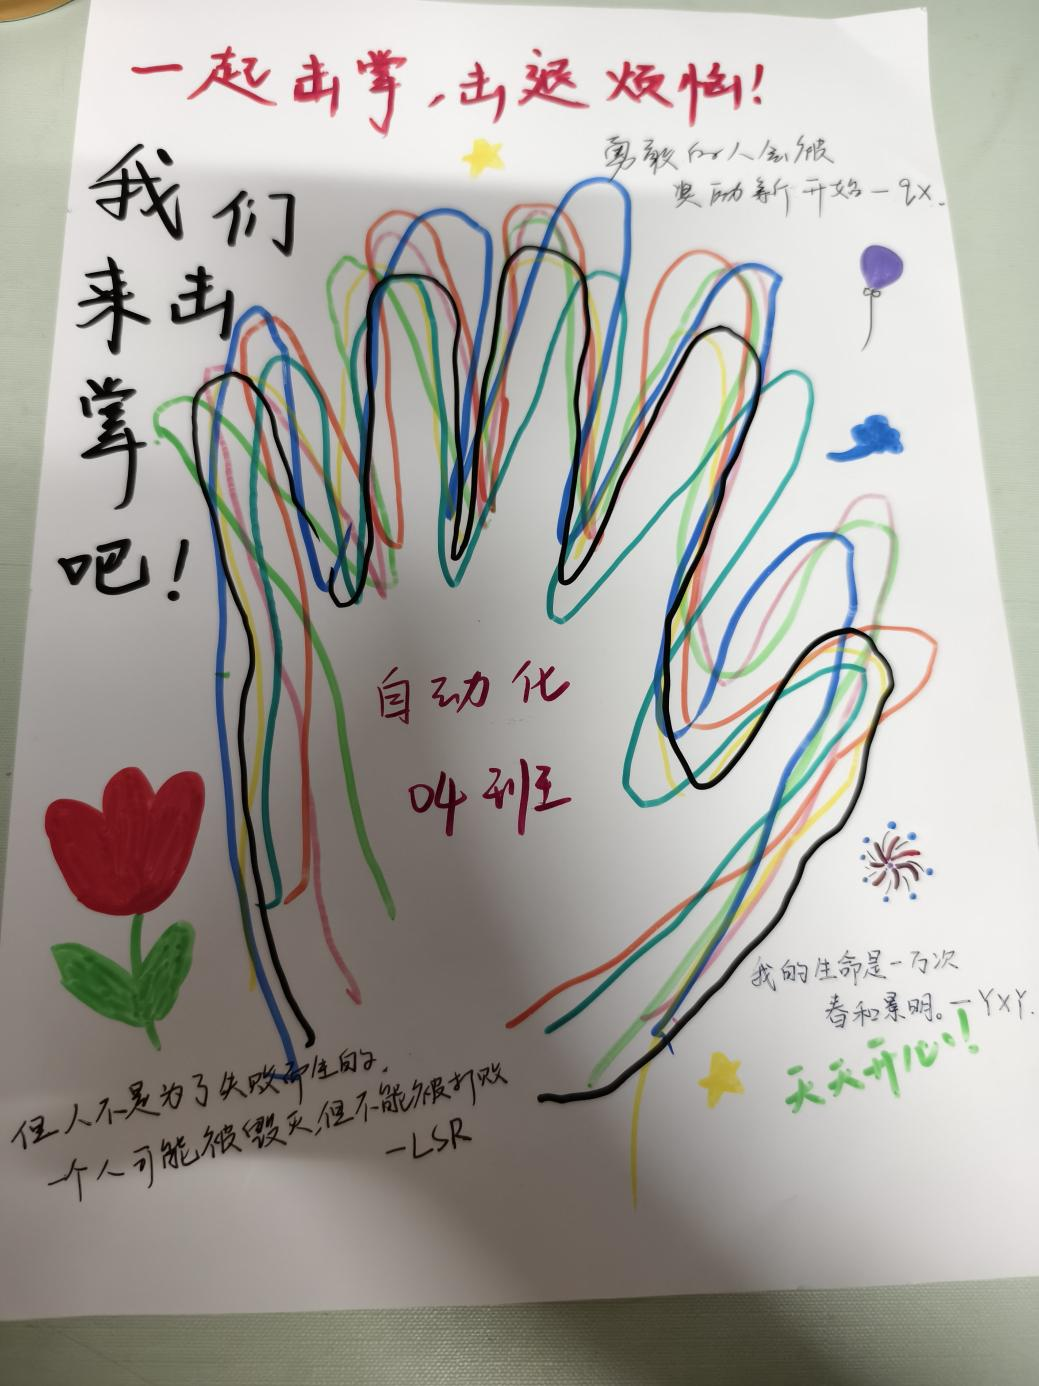 一起击掌，击退烦恼！
勇敢的人会被
奖励新开始—qx.
我们
来击
掌
吧！
自动化
04班
我的生命是一万次
春和景明。—YXY.
天天开心！
但人不是为了失败而生的，
一个人可能被毁灭，但不能被打败
—LSR